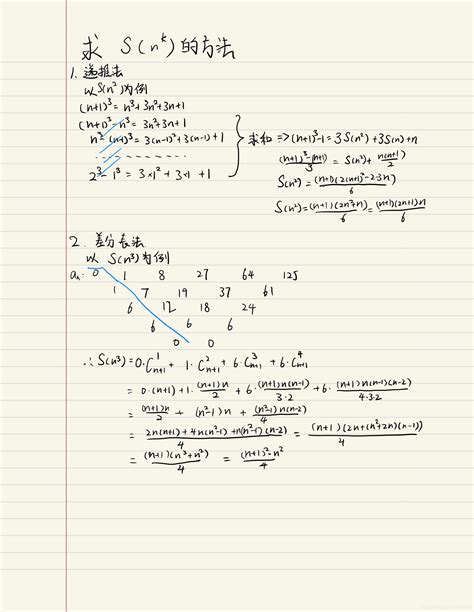 求 S(n^k)的方法
1. 递推法
以S(n²)为例
(n+1)³=n³+3n²+3n+1
(n+1)³-n³=3n²+3n+1
n³-(n-1)³=3(n-1)²+3(n-1)+1
……………
2³-1³=3×1²+3×1+1
求和=>(n+1)³-1=3S(n²)+3S(n)+n
((n+1)³-(n+1))/3=S(n²)+n(n+1)/2
S(n²)=
S(n²)=(n+1)(2n²+n)/6=(n+1)(2n+1)n/6
2. 差分表法
以 S(n³)为例
aₙ: 0 1 8 27 64 125
1 7 19 37 61
6 12 18 24
6 6 6
0 0
∴S(n³)=0·C¹ₙ₊₁+1·C²ₙ₊₁+6·C³ₙ₊₁+6·C⁴ₙ₊₁
=0·(n+1)+1·(n+1)n/2+6·(n+1)n(n-1)/3·2+6·(n+1)n(n-1)(n-2)/4·3·2
=(n+1)n/2+(n²-1)n+(n²-1)n(n-2)/4
=(2n(n+1)+4n(n²-1)+n(n²-1)(n-2))/4=(n+1)(2n+(n²+2n)(n-1))/4
=(n+1)(n³+n²)/4=(n+1)²·n²/4